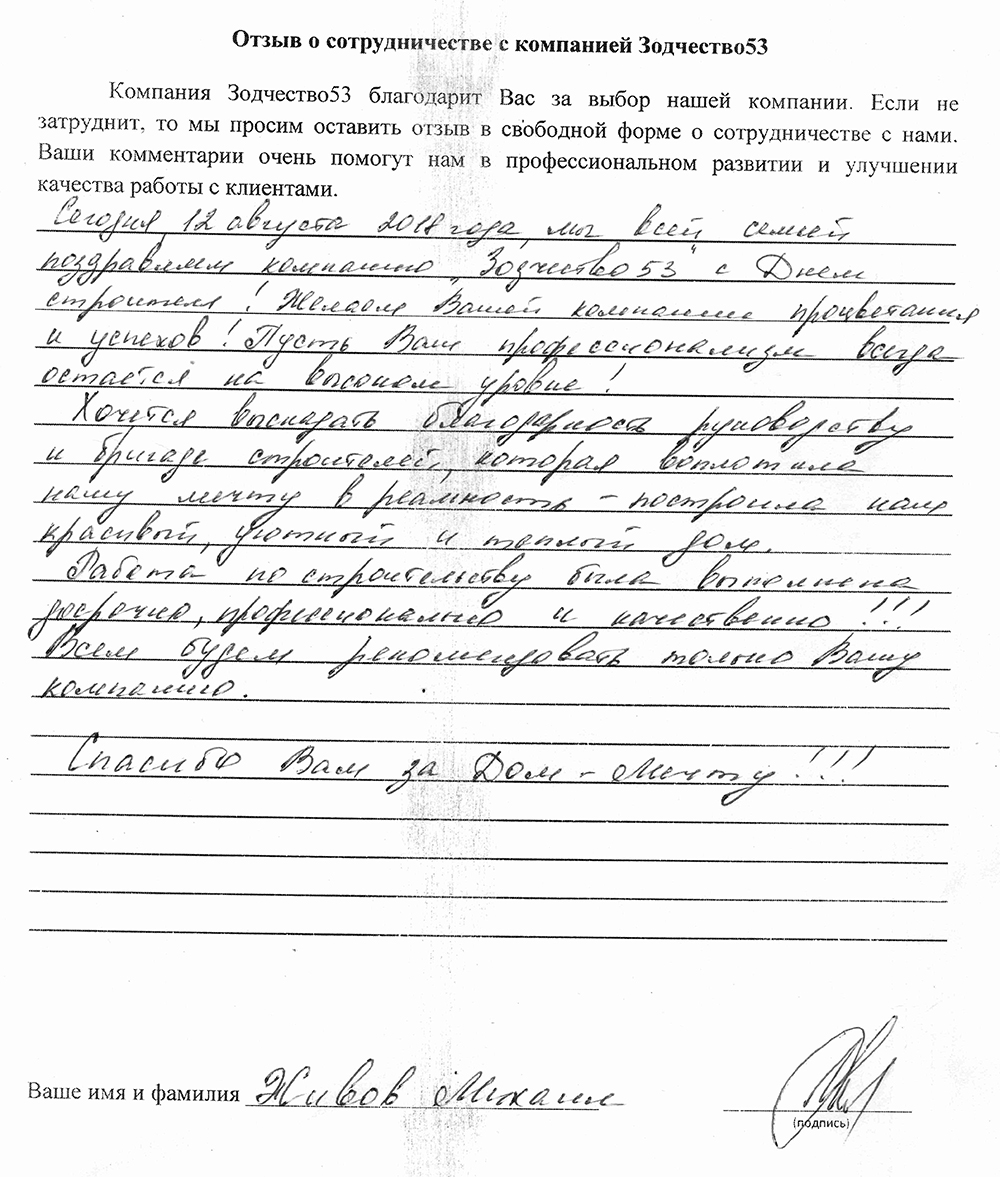 Отзыв о сотрудничестве с компанией Зодчество53
Компания Зодчество53 благодарит Вас за выбор нашей компании. Если не
затруднит, то мы просим оставить отзыв в свободной форме о сотрудничестве с нами.
Ваши комментарии очень помогут нам в профессиональном развитии и улучшении
качества работы с клиентами.
Сегодня, 12 августа 2018 года, мы всей семьей
поздравляем компанию "Зодчество 53" с Днем
строителя! Желаем Вашей компании процветания
и успехов! Пусть Ваш профессионализм всегда
остается на высоком уровне!
Хочется высказать благодарность руководству
и бригаде строителей, которая воплотила
нашу мечту в реальность - построила нам
красивый, уютный и теплый дом.
Работа по строительству была выполнена
досрочно, профессионально и качественно!!!
Всем будем рекомендовать только Вашу
компанию.
Спасибо Вам за Дом - Мечту!!!
Ваше имя и фамилия Живов Михаил
(подпись)